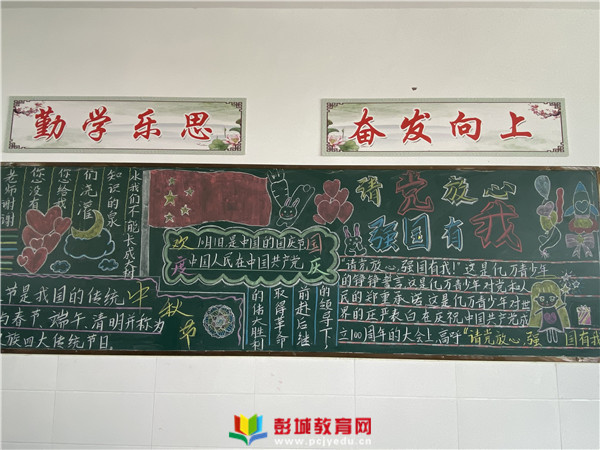 勤学乐思
奋发向上
老师谢谢
您没有
您给我
们浇灌
知识的泉
水我们不能长成大树
欢
度
国
庆
10月1日是中国的国庆节
中国人民在中国共产党
的领导下,
前赴后继
取得革命
的伟大胜利
请党放心
强国有我
“请党放心,强国有我!”这是亿万青少年
的铮铮誓言这是亿万青少年对党和人
民的郑重承诺,这是亿万青少年对世
界的庄严表白在庆祝中国共产党成
立100周年的大会上,高呼“请党放心,强国有我
中秋节
节是我国的传统
与春节、端午、清明并称为
族四大传统节日。
彭城教育网
www.pcjyedu.cn